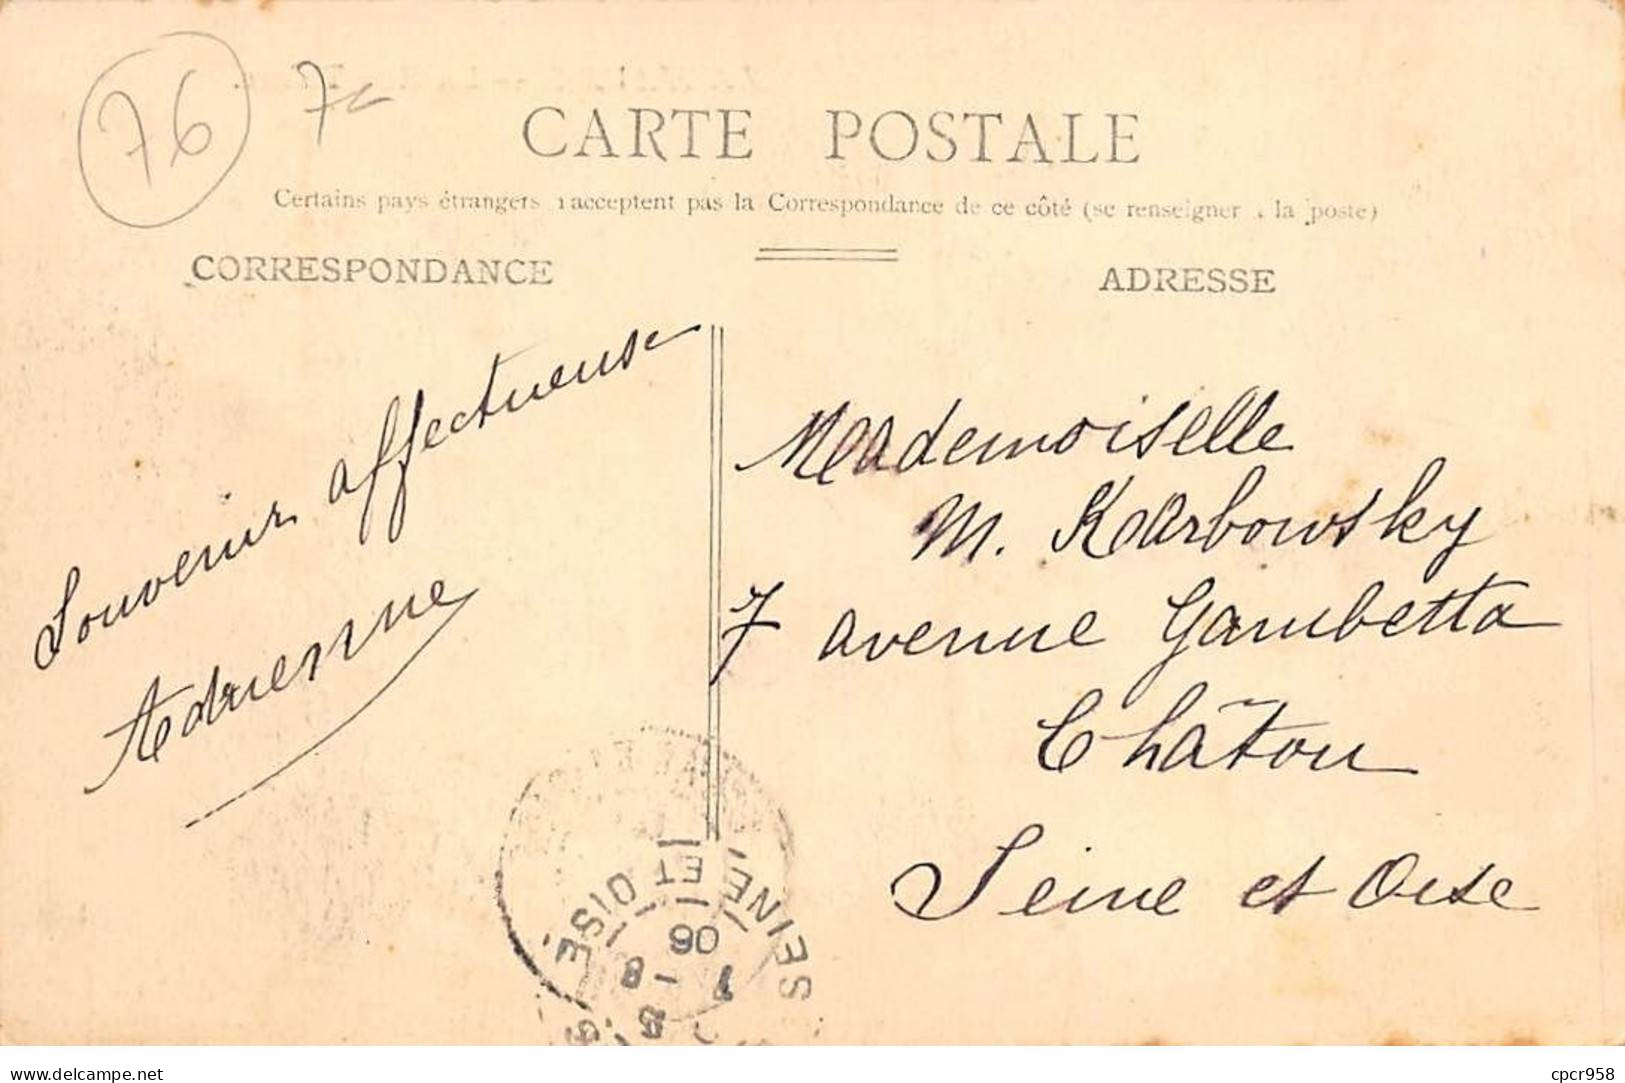 76
CARTE POSTALE
Certains pays étrangers n'acceptent pas la Correspondance de ce côté (se renseigner à la poste)
CORRESPONDANCE
ADRESSE
Souvenir affectueuse
Adrienne
Mademoiselle
M. Karbowsky
7 avenue Gambetta
Châtou
Seine et Oise
SEINE ET OISE
06
delcampe.net
cpcr958